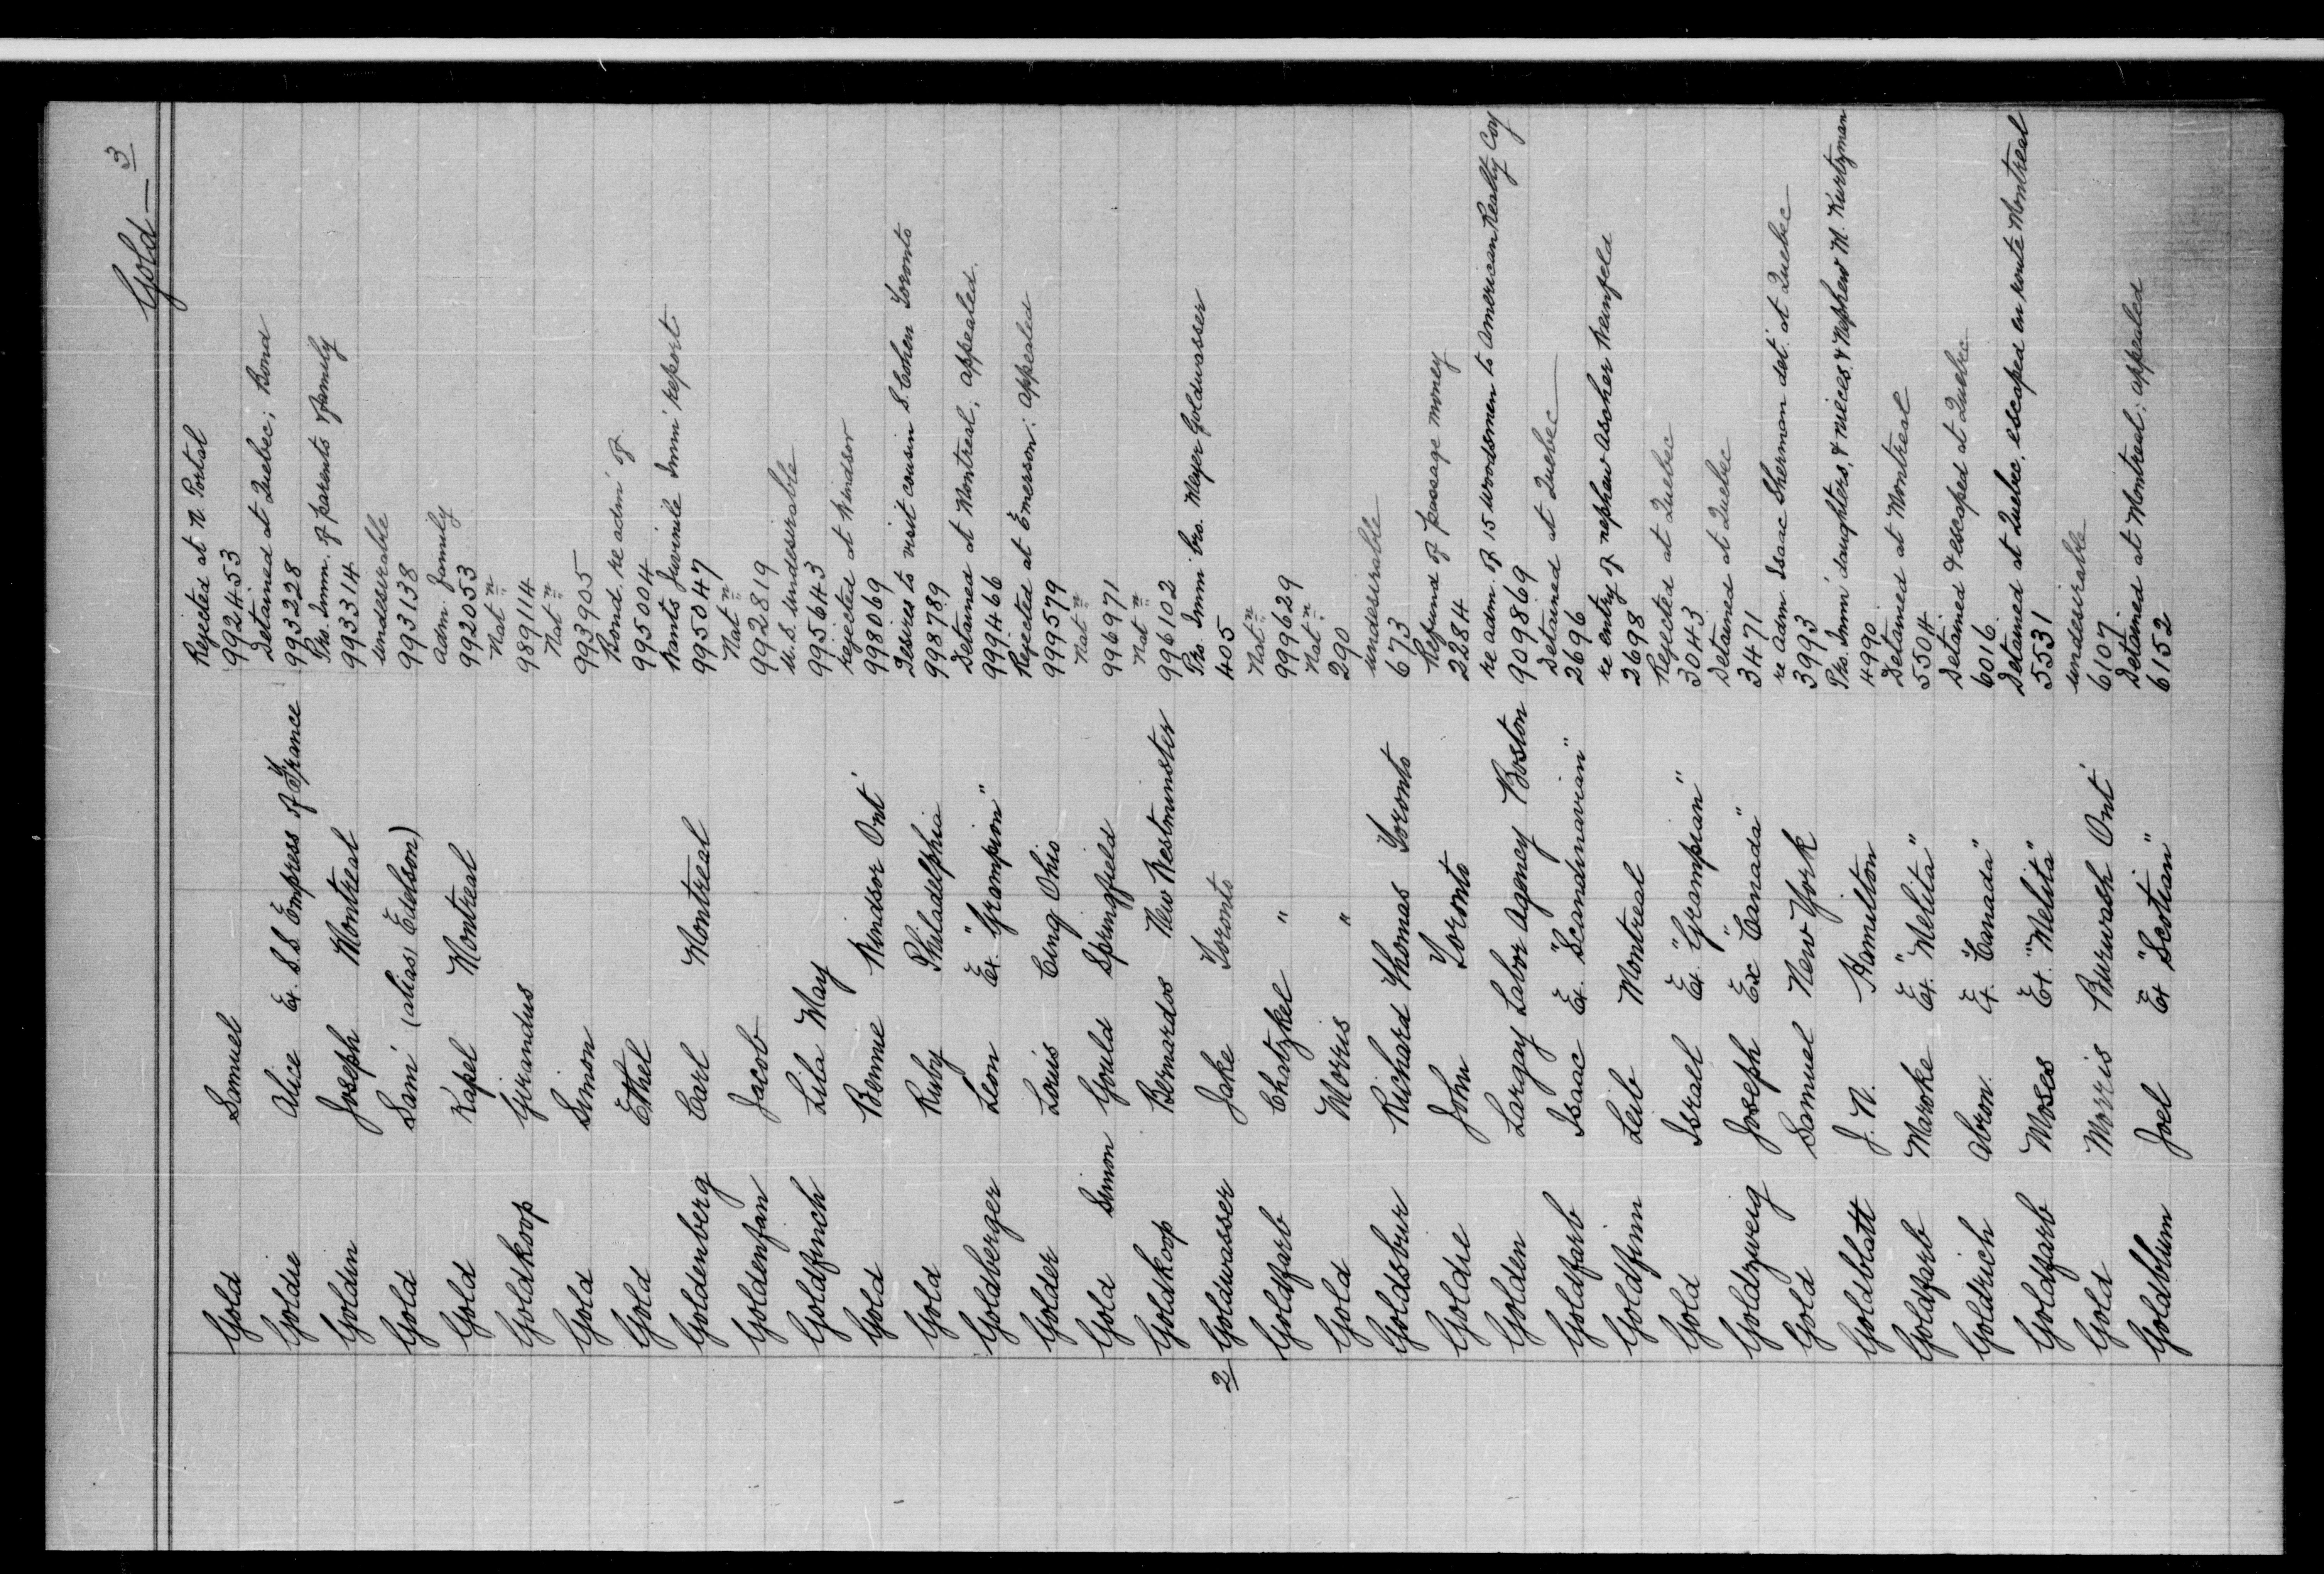 Gold — 3
Gold Samuel Rejected at N. Portal
992453
Goldie Alice Ex. S.S. Empress of France Detained at Quebec; Bond
993228
Goldin Joseph Montreal Pro. Imm. of parents & family
993314
Gold Sam (alias Edelson) undesirable
993138
Gold Kapel Montreal adm. family
992053
Goldkoop Girandus Nat n
989114
Gold Simon Nat n
993905
Gold Ethel Bond. re adm' of
995004
Goldenberg Carl Montreal Wants Juvinile Imm' report
995047
Goldenfan Jacob Nat n
992819
Goldfinch Lila May U.S. undesirable
995643
Gold Bennie Windsor Ont' rejected at Windsor
998069
Gold Ruby Philadelphia Desires to visit cousin S. Cohen Toronto
998789
Goldberger Leon Ex. "Grampion" Detained at Montreal; appealed.
999466
Golder Louis Cing Ohio Rejected at Emerson; appealed
999579
Gold Simon Gould Springfield Nat n
996971
Goldkoop Bernardos New Westminster Nat n
996102
2 Goldwasser Jake Toronto Pro. Imm bro. Meyer Goldwasser
405
Goldfarb Chatzkel " Nat n
999629
Gold Morris " Nat n
290
Goldsbur Richard Thomas Toronto undesirable
673
Goldie John Toronto Refund of passage money
2284
Golden Largay Labor Agency Boston re adm. of 15 woodsmen to American Realty Coy
909869
Goldfarb Isaac Ex. "Scandinavian" Detained at Quebec
2696
Goldfinn Leib Montreal re entry of nephew Asoher Weinfeld
2698
Gold Israel Ex. "Grampian" Rejected at Quebec
3043
Goldzweig Joseph Ex "Canada" Detained at Quebec
3471
Gold Samuel New York re adm. Isaac Sherman det. at Quebec
3993
Goldblatt J. N. Hamilton Pro. Imm' daughters, & nieces, & Nephew M. Kurtzman
4990
Goldfarb Maroke Ex. "Melita" Detained at Montreal
5504
Goldrich Abron Ex. "Canada" Detained & escaped at Quebec
6016
Goldfarb Moses Ex. "Melita" Detained at Quebec, escaped en route Montreal
5531
Gold Morris Burwash Ont' undesirable
6107
Goldblum Joel Ex "Scotian" Detained at Montreal; appealed
6152